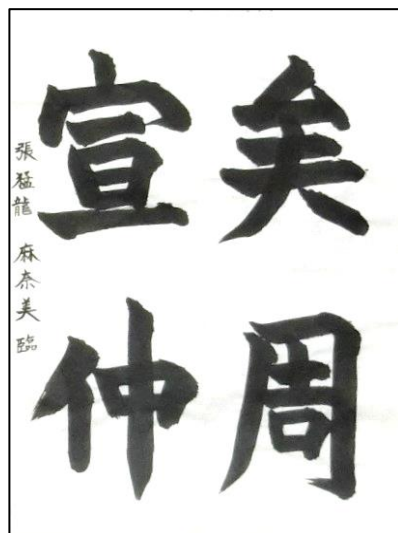 矣周
宣仲
張猛龍 麻奈美 臨